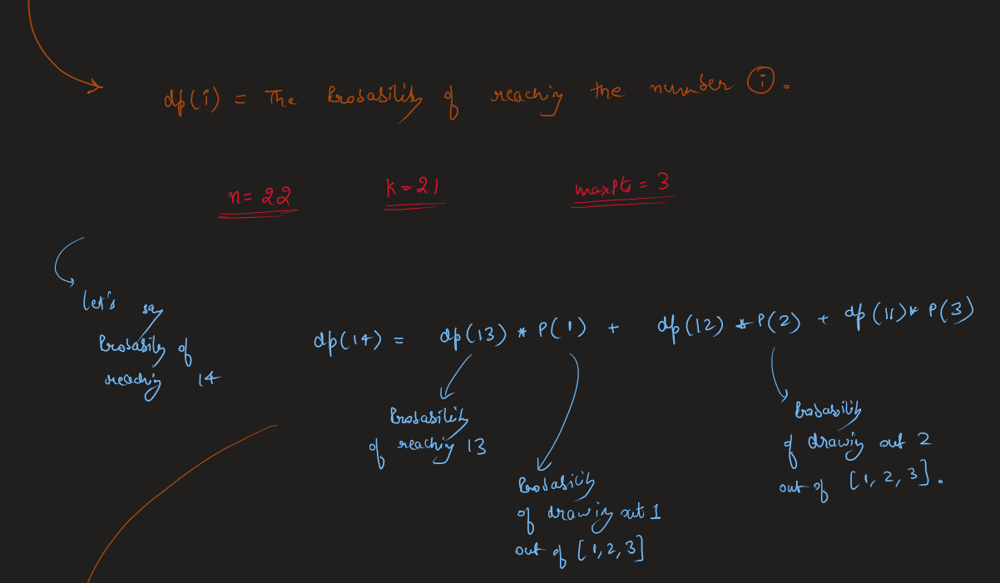 dp(i) = The Probability of reaching the number i.
n=22 k=21 maxPts = 3
Let's say
Probability of
reaching 14
dp(14) = dp(13) * P(1) + dp(12) * P(2) + dp(11) * P(3)
Probability
of reaching 13
Probability
of drawing out 1
out of [1, 2, 3]
Probability
of drawing out 2
out of [1, 2, 3].